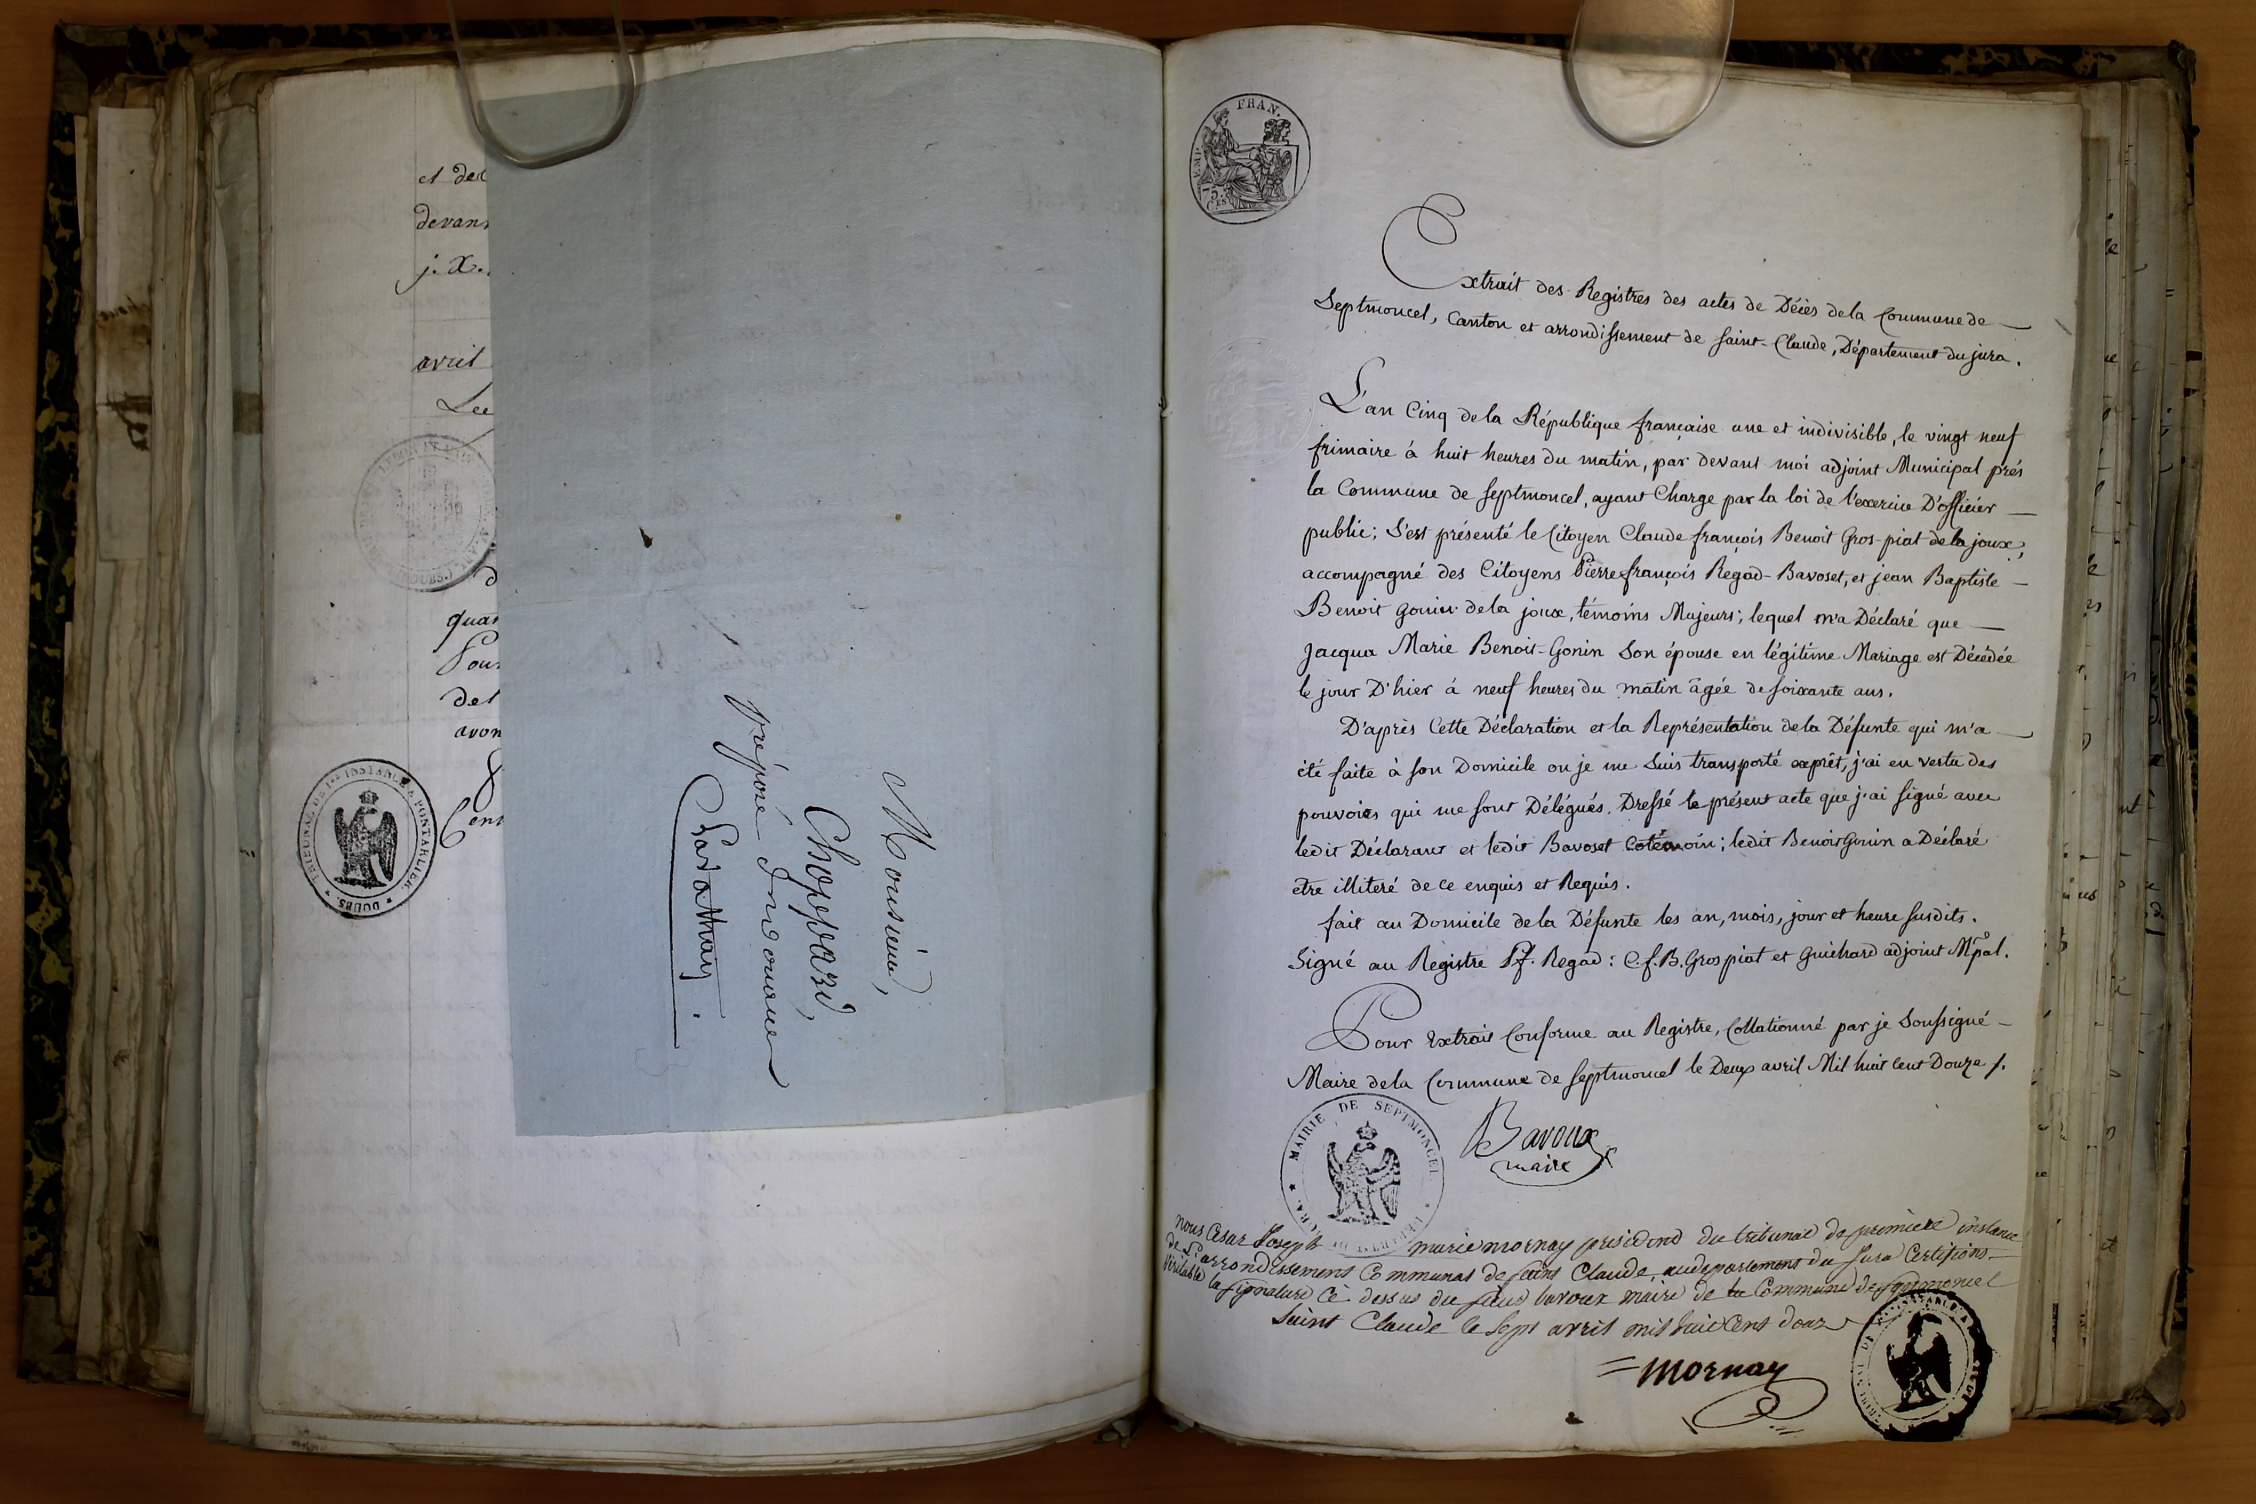 et de
devan
j. X.
avril
Lee
quan
Pour
del
avon
Cent
TRIBUNAL DE 1ERE INSTANCE PONTARLIER
DOUBS
Monsieur,
Choppard,
préposé des Douanes
EMP. FRAN.
75
CES
Extrait des Registres des actes de Décès de la Commune de
Septmoncel, Canton et arrondissement de saint-Claude, Département du jura.
L'an Cinq de la République française une et indivisible, le vingt neuf
frimaire à huit heures du matin, par devant moi adjoint Municipal près
la Commune de Septmoncel, ayant Charge par la loi de l'exercice D'officier
public; S'est présenté le Citoyen Claude françois Benoit Gros-piat de la joux,
accompagné des Citoyens Pierre françois Regad-Bavoset, et jean Baptiste
Benoit Gonin de la joux, témoins Majeurs; lequel m'a Déclaré que
Jacqua Marie Benoit-Gonin Son épouse en légitime Mariage est Décédée
le jour D'hier à neuf heures du matin âgée de soixante ans.
D'après Cette Déclaration et la Représentation de la Défunte qui m'a
été faite à son Domicile ou je me Suis transporté exprêt, j'ai en vertu des
pouvoirs qui me sont Délégués. Dressé le présent acte que j'ai signé avec
ledit Déclarant et ledit Bavoset Cotémoin; ledit Benoit Gonin a Déclaré
etre illiteré de ce enquis et Requis.
fait au Domicile de la Défunte les an, mois, jour et heure susdits.
Signé au Registre P.f. Regad: C.f.B. Gros piat et Guichard adjoint Mpal.
Pour Extrait Conforme au Registre, Collationné par je Soussigné
Maire de la Commune de Septmoncel le Deux avril Mil huit cent Douze /.
MAIRIE DE SEPTMONCEL
JURA
Bavoux
maire
nous Cesar Joseph marie mornay president du tribunal de premiere instance
de L'arrondissement Communal de saint Claude, au departement du Jura Certifions
véritable la signature cè dessus du sieur bavoux maire de la Commune de septmoncel
Saint Claude le sept avril mil huit Cent douze
mornay